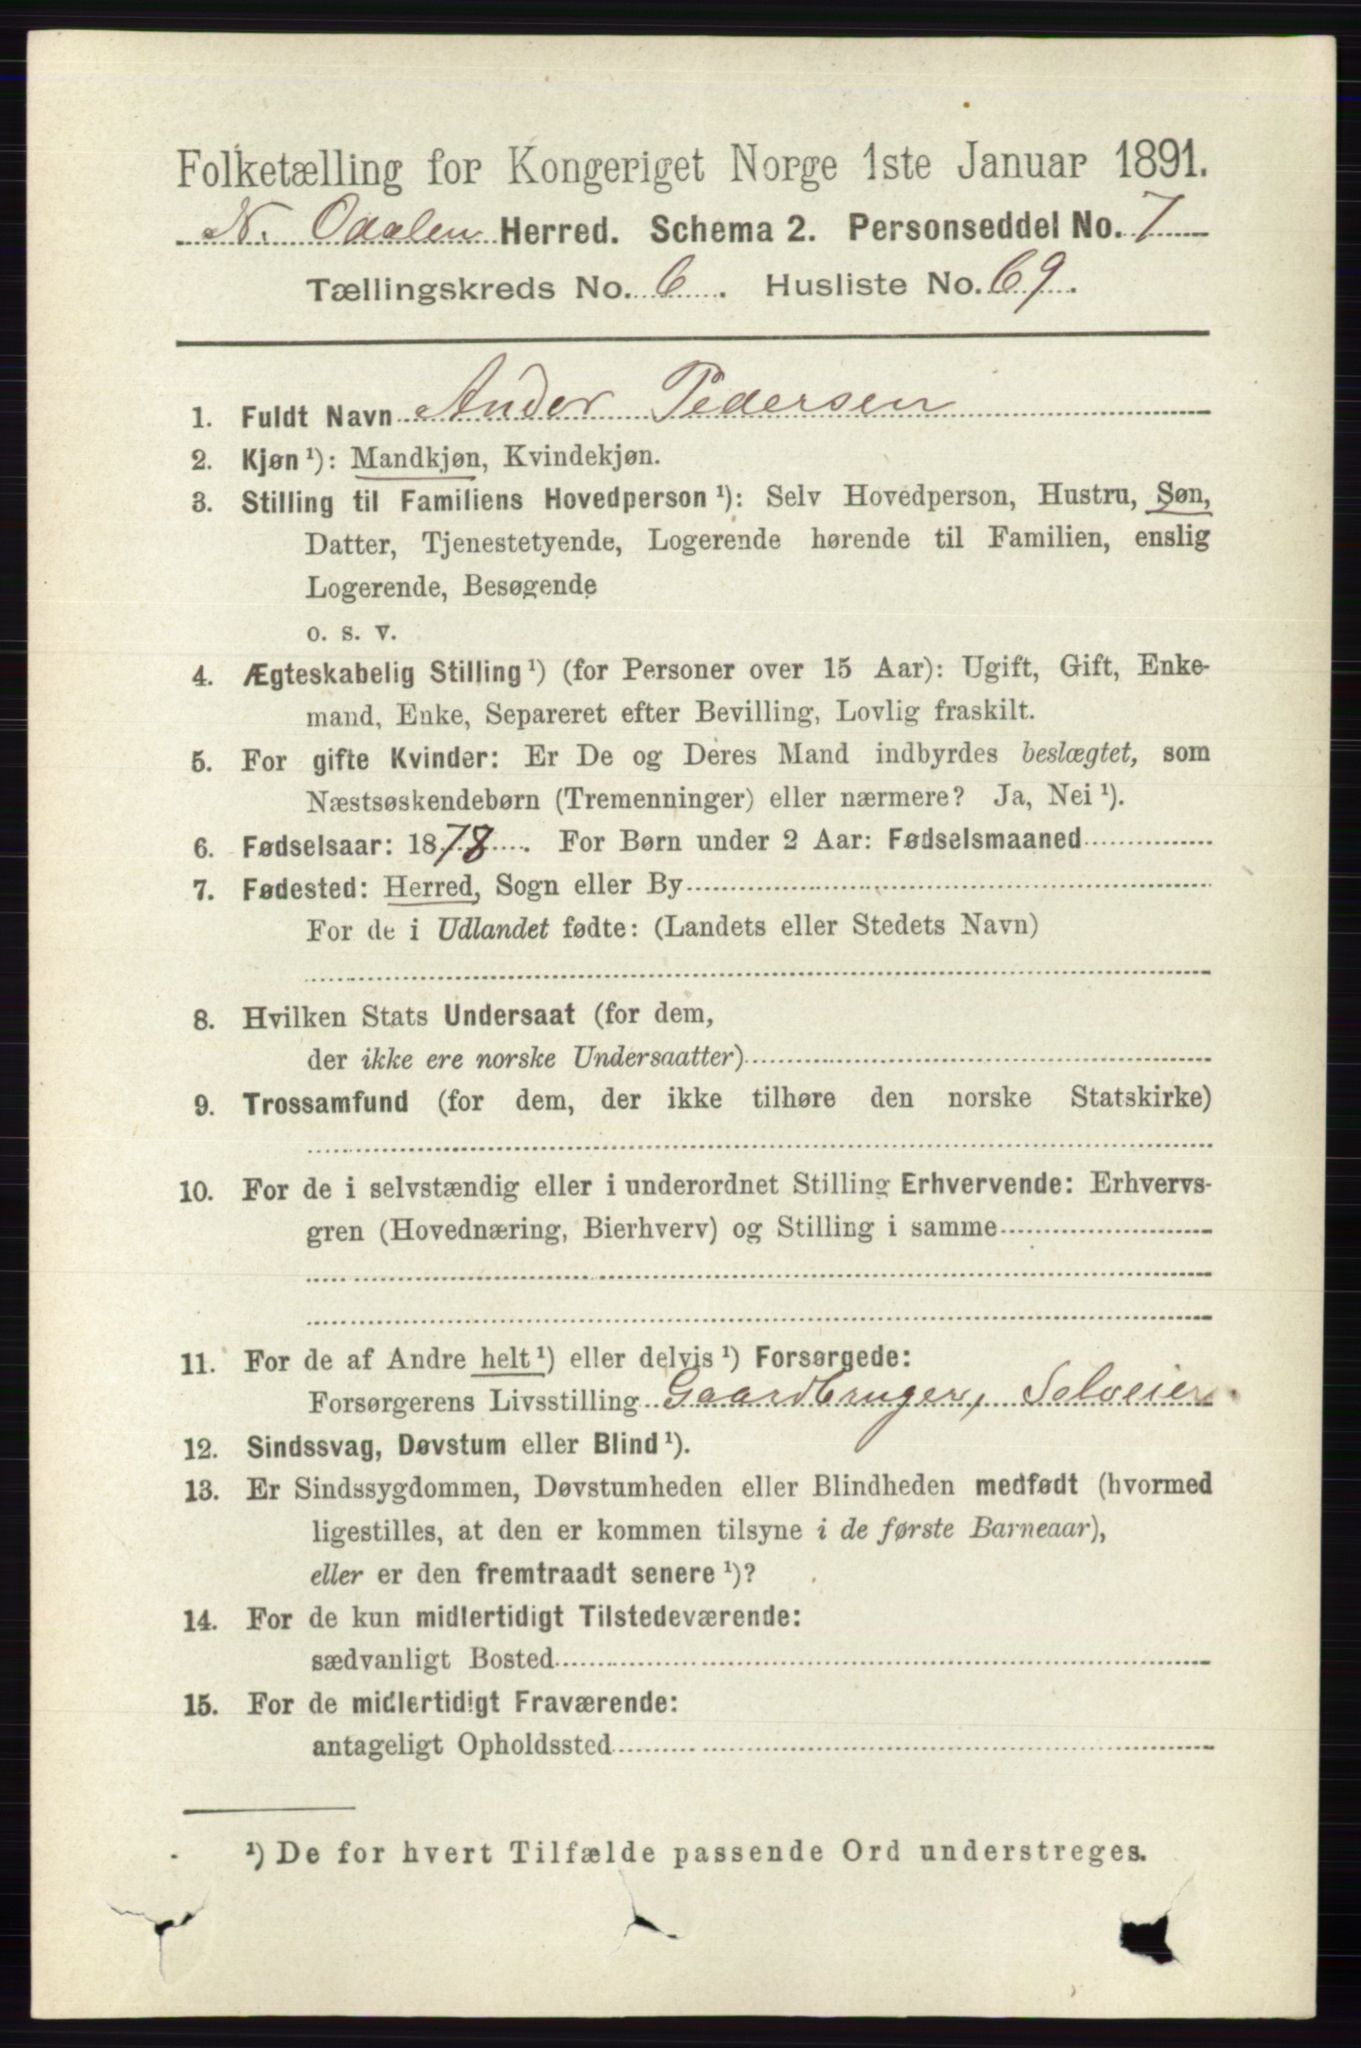 Folketælling for Kongeriget Norge 1ste Januar 1891.
N. Odalen Herred. Schema 2. Personseddel No. 7
Tællingskreds No. 6. Husliste No. 69.
1. Fuldt Navn Ander Pedersen
2. Kjøn ¹): Mandkjøn, Kvindekjøn.
3. Stilling til Familiens Hovedperson ¹): Selv Hovedperson, Hustru, Søn,
Datter, Tjenestetyende, Logerende hørende til Familien, enslig
Logerende, Besøgende
o. s. v.
4. Ægteskabelig Stilling ¹) (for Personer over 15 Aar): Ugift, Gift, Enke-
mand, Enke, Separeret efter Bevilling, Lovlig fraskilt.
5. For gifte Kvinder: Er De og Deres Mand indbyrdes beslægtet, som
Næstsøskendebørn (Tremenninger) eller nærmere? Ja, Nei ¹).
6. Fødselsaar: 1878. For Børn under 2 Aar: Fødselsmaaned
7. Fødested: Herred, Sogn eller By
For de i Udlandet fødte: (Landets eller Stedets Navn)
8. Hvilken Stats Undersaat (for dem,
der ikke ere norske Undersaatter)
9. Trossamfund (for dem, der ikke tilhøre den norske Statskirke)
10. For de i selvstændig eller i underordnet Stilling Erhvervende: Erhvervs-
gren (Hovednæring, Bierhverv) og Stilling i samme
11. For de af Andre helt ¹) eller delvis ¹) Forsørgede:
Forsørgerens Livsstilling Gaardbruger, Selveier
12. Sindssvag, Døvstum eller Blind ¹).
13. Er Sindssygdommen, Døvstumheden eller Blindheden medfødt (hvormed
ligestilles, at den er kommen tilsyne i de første Barneaar),
eller er den fremtraadt senere ¹)?
14. For de kun midlertidigt Tilstedeværende:
sædvanligt Bosted
15. For de midlertidigt Fraværende:
antageligt Opholdssted
¹) De for hvert Tilfælde passende Ord understreges.